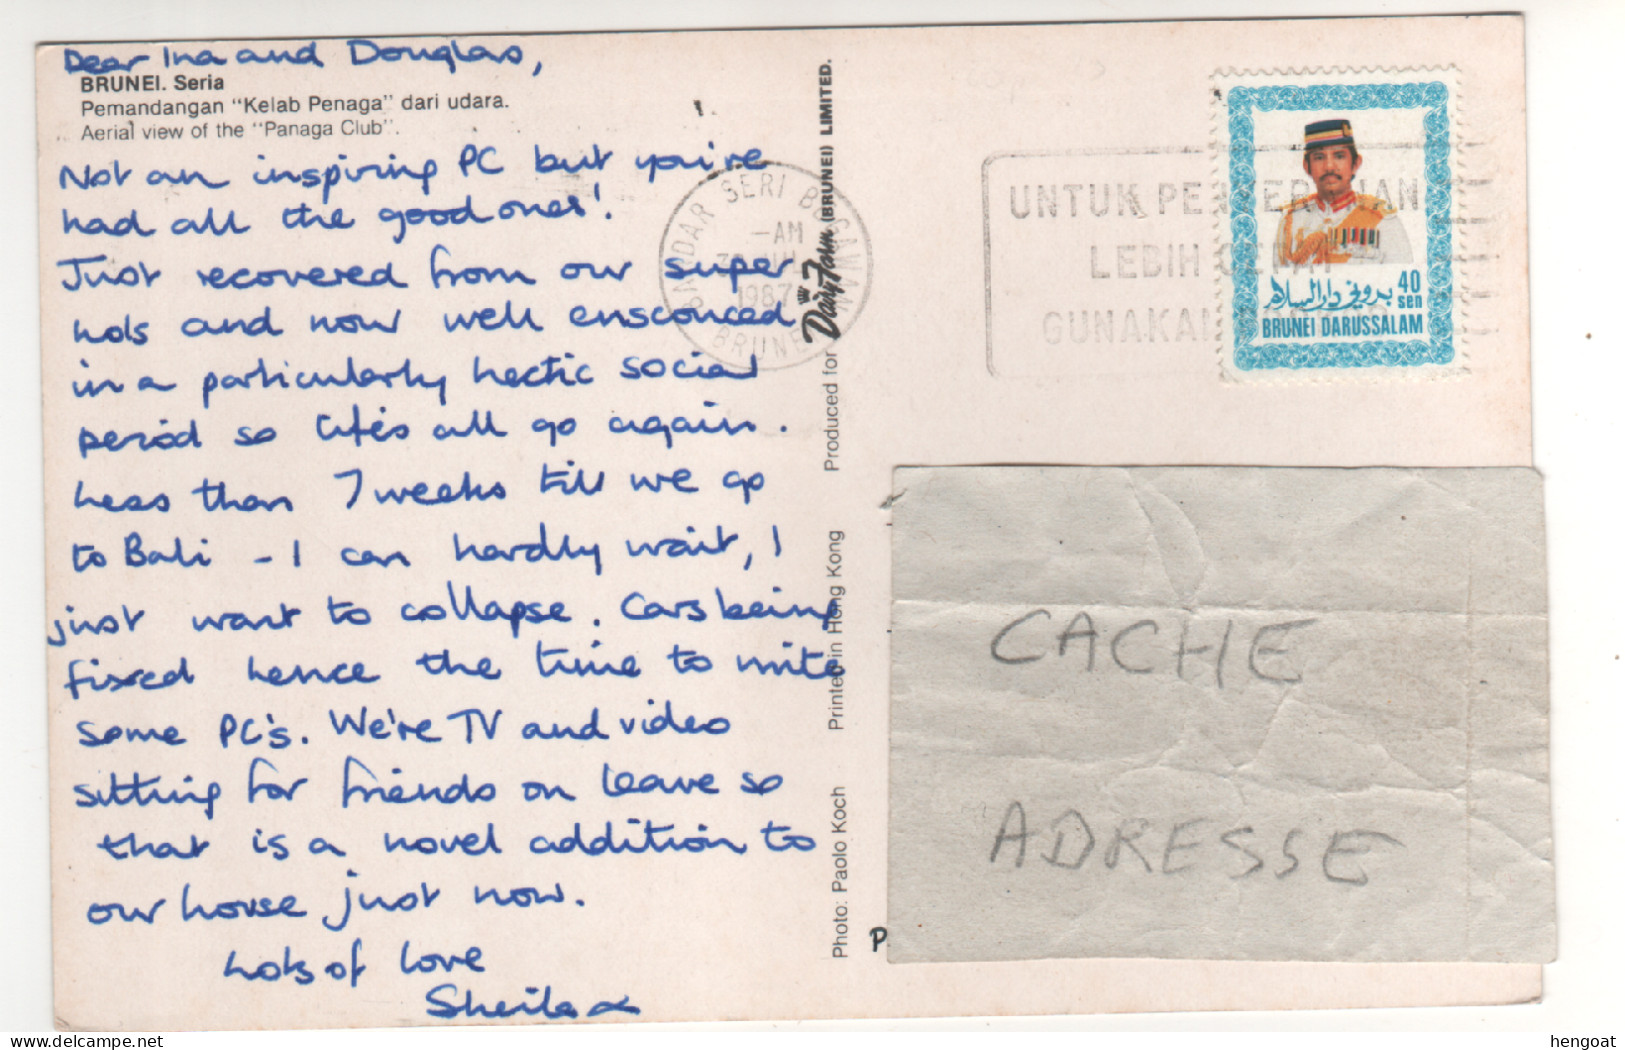 Dear Ina and Douglas,
BRUNEI. Seria
Pemandangan "Kelab Penaga" dari udara.
Aerial view of the "Panaga Club".
Not an inspiring PC but you've
had all the good ones!
Just recovered from our super
hols and now well ensconced
in a particularly hectic social
period so life's all go again.
Less than 7 weeks till we go
to Bali - I can hardly wait, I
just want to collapse. Cars being
fixed hence the time to write
some PC's. We're TV and video
sitting for friends on leave so
that is a novel addition to
our house just now.
Lots of love
Sheila x
Photo: Paolo Koch
Printed in Hong Kong
Produced for Dairy Farm (BRUNEI) LIMITED.
BANDAR SERI BEGAWAN
-AM
1987
BRUNEI
UNTUK
LEBIH
40
sen
بروني دارالسلام
BRUNEI DARUSSALAM
CACHE
ADRESSE
P
www.delcampe.net
hengoat